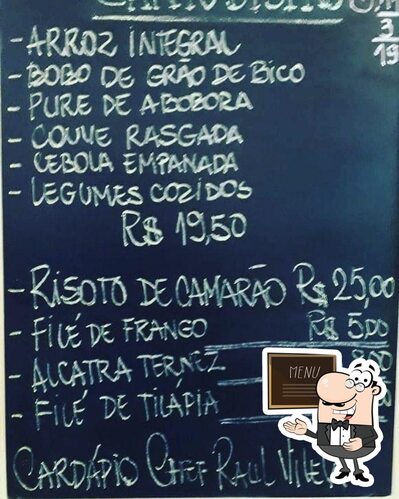 - ARROZ INTEGRAL
- BOBO DE GRÃO DE BICO
- PURE DE ABOBORA
- COUVE RASGADA
- CEBOLA EMPANADA
- LEGUMES COZIDOS
R$ 19,50
- RISOTO DE CAMARÃO R$ 25,00
- FILÉ DE FRANGO R$ 5,00
- ALCATRA
- FILÉ DE TILÁPIA
MENU
CARDÁPIO CHEF RAUL